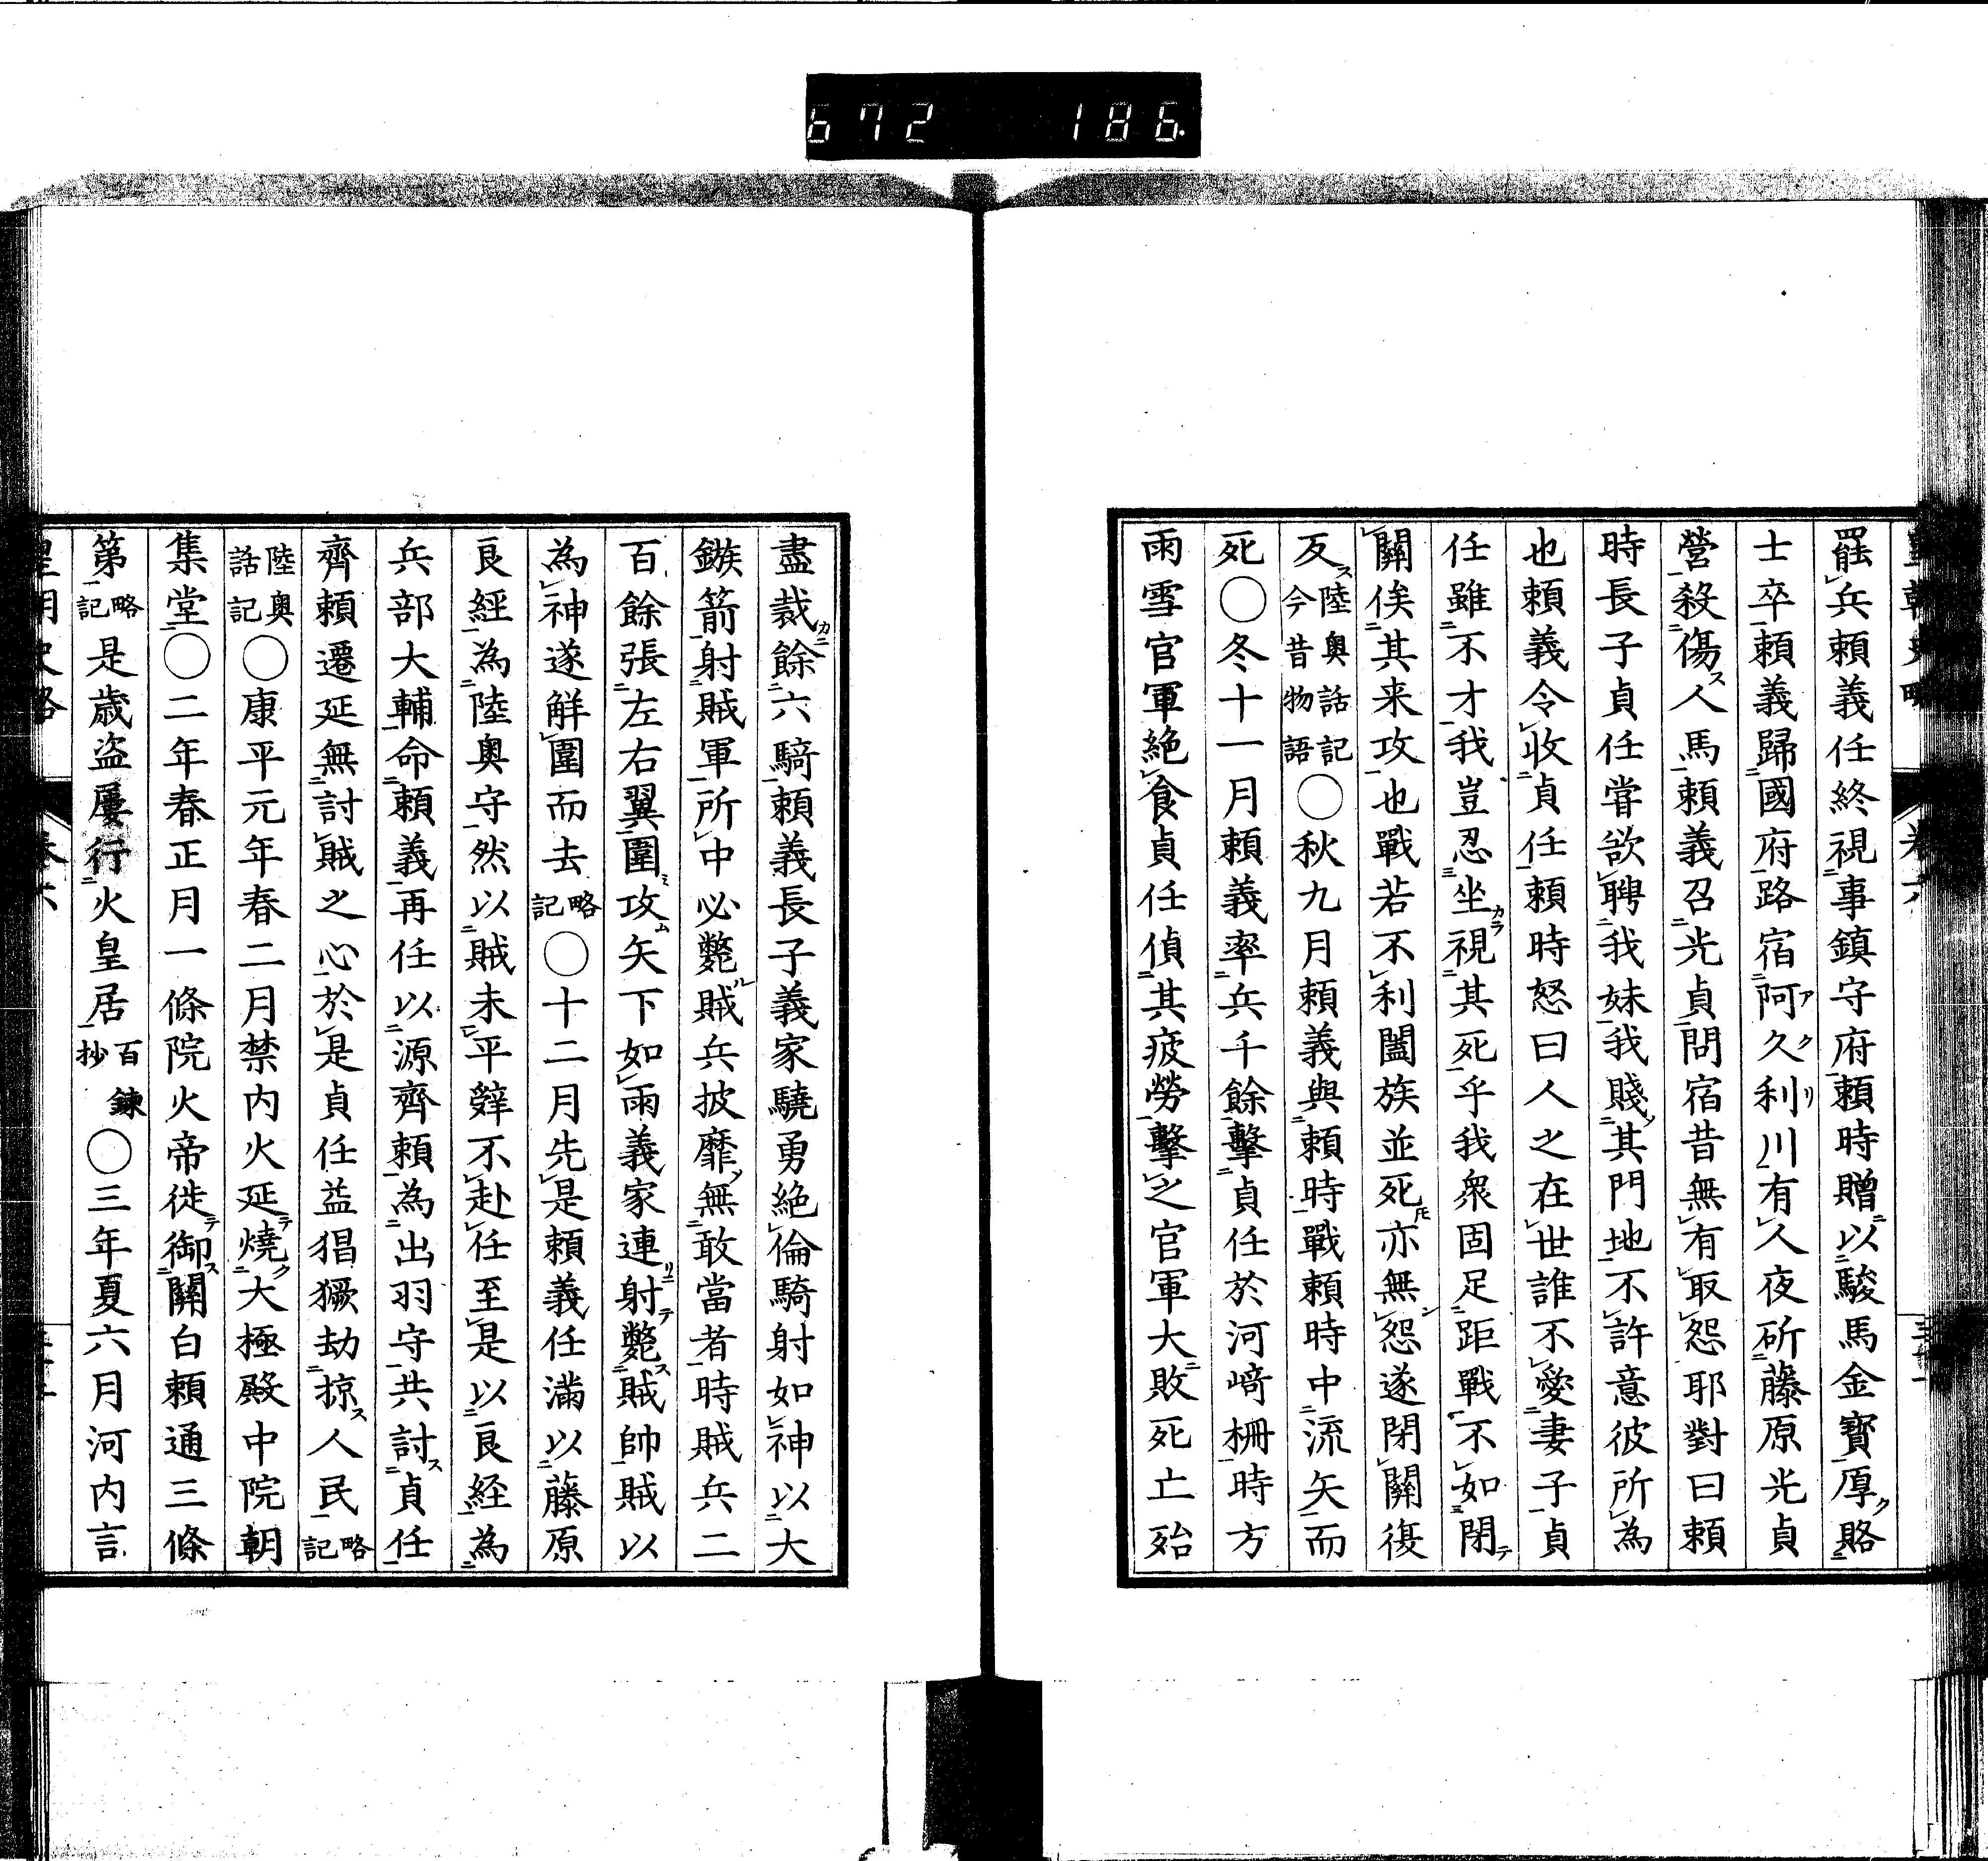 672 186
罷兵頼義任終視事鎮守府頼時贈以駿馬金寳厚賂
士卒頼義歸國府路宿阿久利川有人夜斫藤原光貞
營殺傷人馬頼義召光貞問宿昔無有取怨耶對曰頼
時長子貞任嘗欲聘我妹我賤其門地不許意彼所為
也頼義令收貞任頼時怒曰人之在世誰不愛妻子貞
任雖不才我豈忍坐視其死乎我衆固足距戰不如閉
關俟其来攻也戰若不利闔族並死亦無怨遂閉關復
反陸奥話記今昔物語○秋九月頼義與頼時戰頼時中流矢而
死○冬十一月頼義率兵千餘擊貞任於河﨑柵時方
雨雪官軍絶食貞任偵其疲勞擊之官軍大敗死亡殆
盡裁餘六騎頼義長子義家驍勇絶倫騎射如神以大
鏃箭射賊軍所中必斃賊兵披靡無敢當者時賊兵二
百餘張左右翼圍攻矢下如雨義家連射斃賊帥賊以
為神遂解圍而去略記○十二月先是頼義任滿以藤原
良經為陸奥守然以賊未平辭不赴任至是以良経為
兵部大輔命頼義再任以源齊頼為出羽守共討貞任
齊頼遷延無討賊之心於是貞任益猖獗劫掠人民略記
陸奥話記○康平元年春二月禁内火延燒大極殿中院朝
集堂○二年春正月一條院火帝徙御關白頼通三條
第略記是歳盗屢行火皇居百鍊抄○三年夏六月河内言